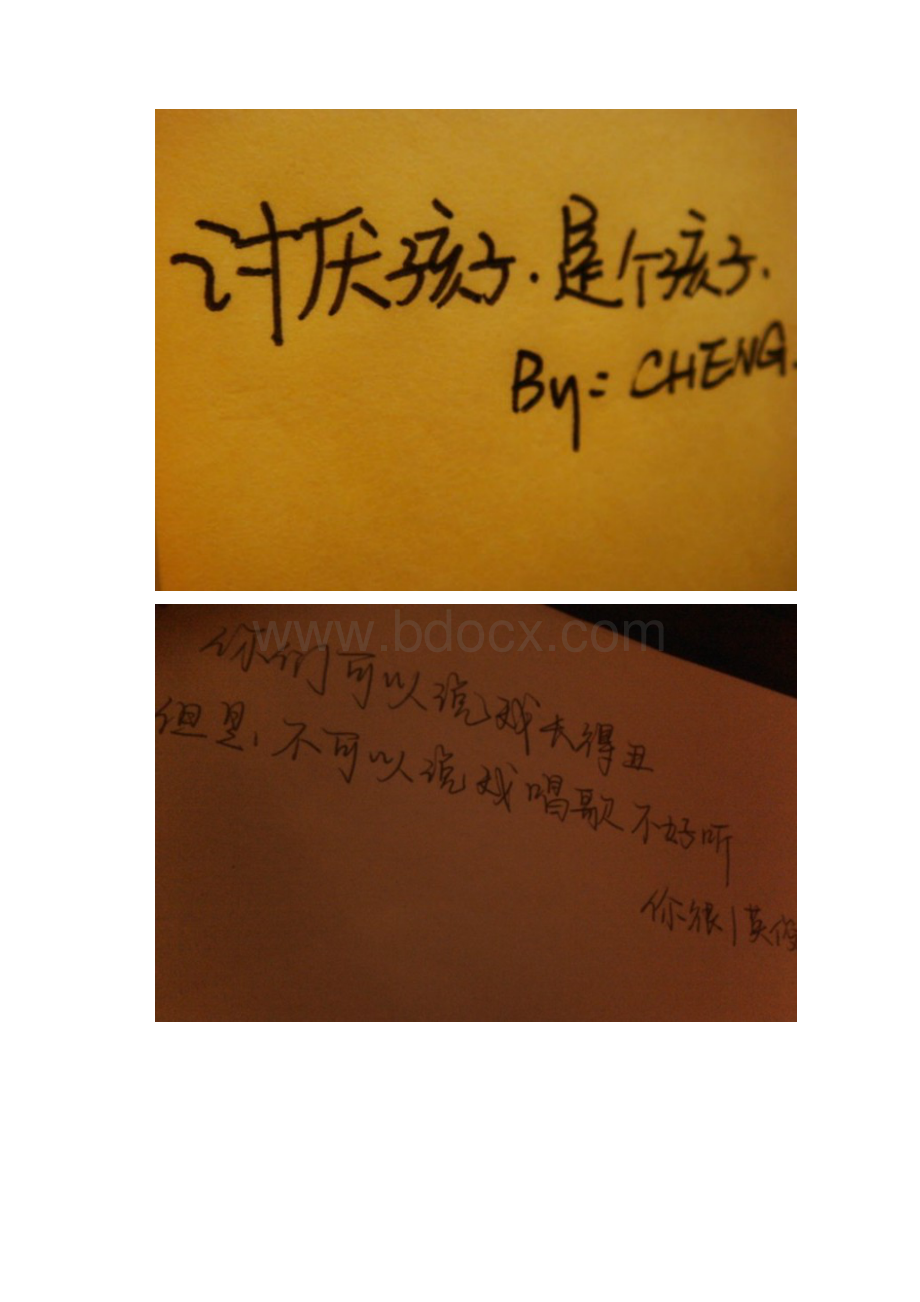 讨厌孩子.是个孩子.
By: CHENG.
www.bdocx.com
你们可以说我长得丑
但是,不可以说我唱歌不好听
你很